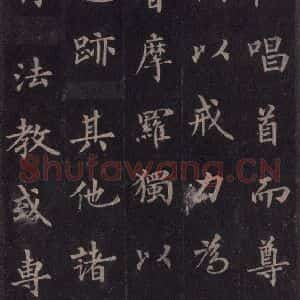 唱首而尊
以戒力為
摩羅獨以
跡其他諸
法教或專
Shufawang.CN